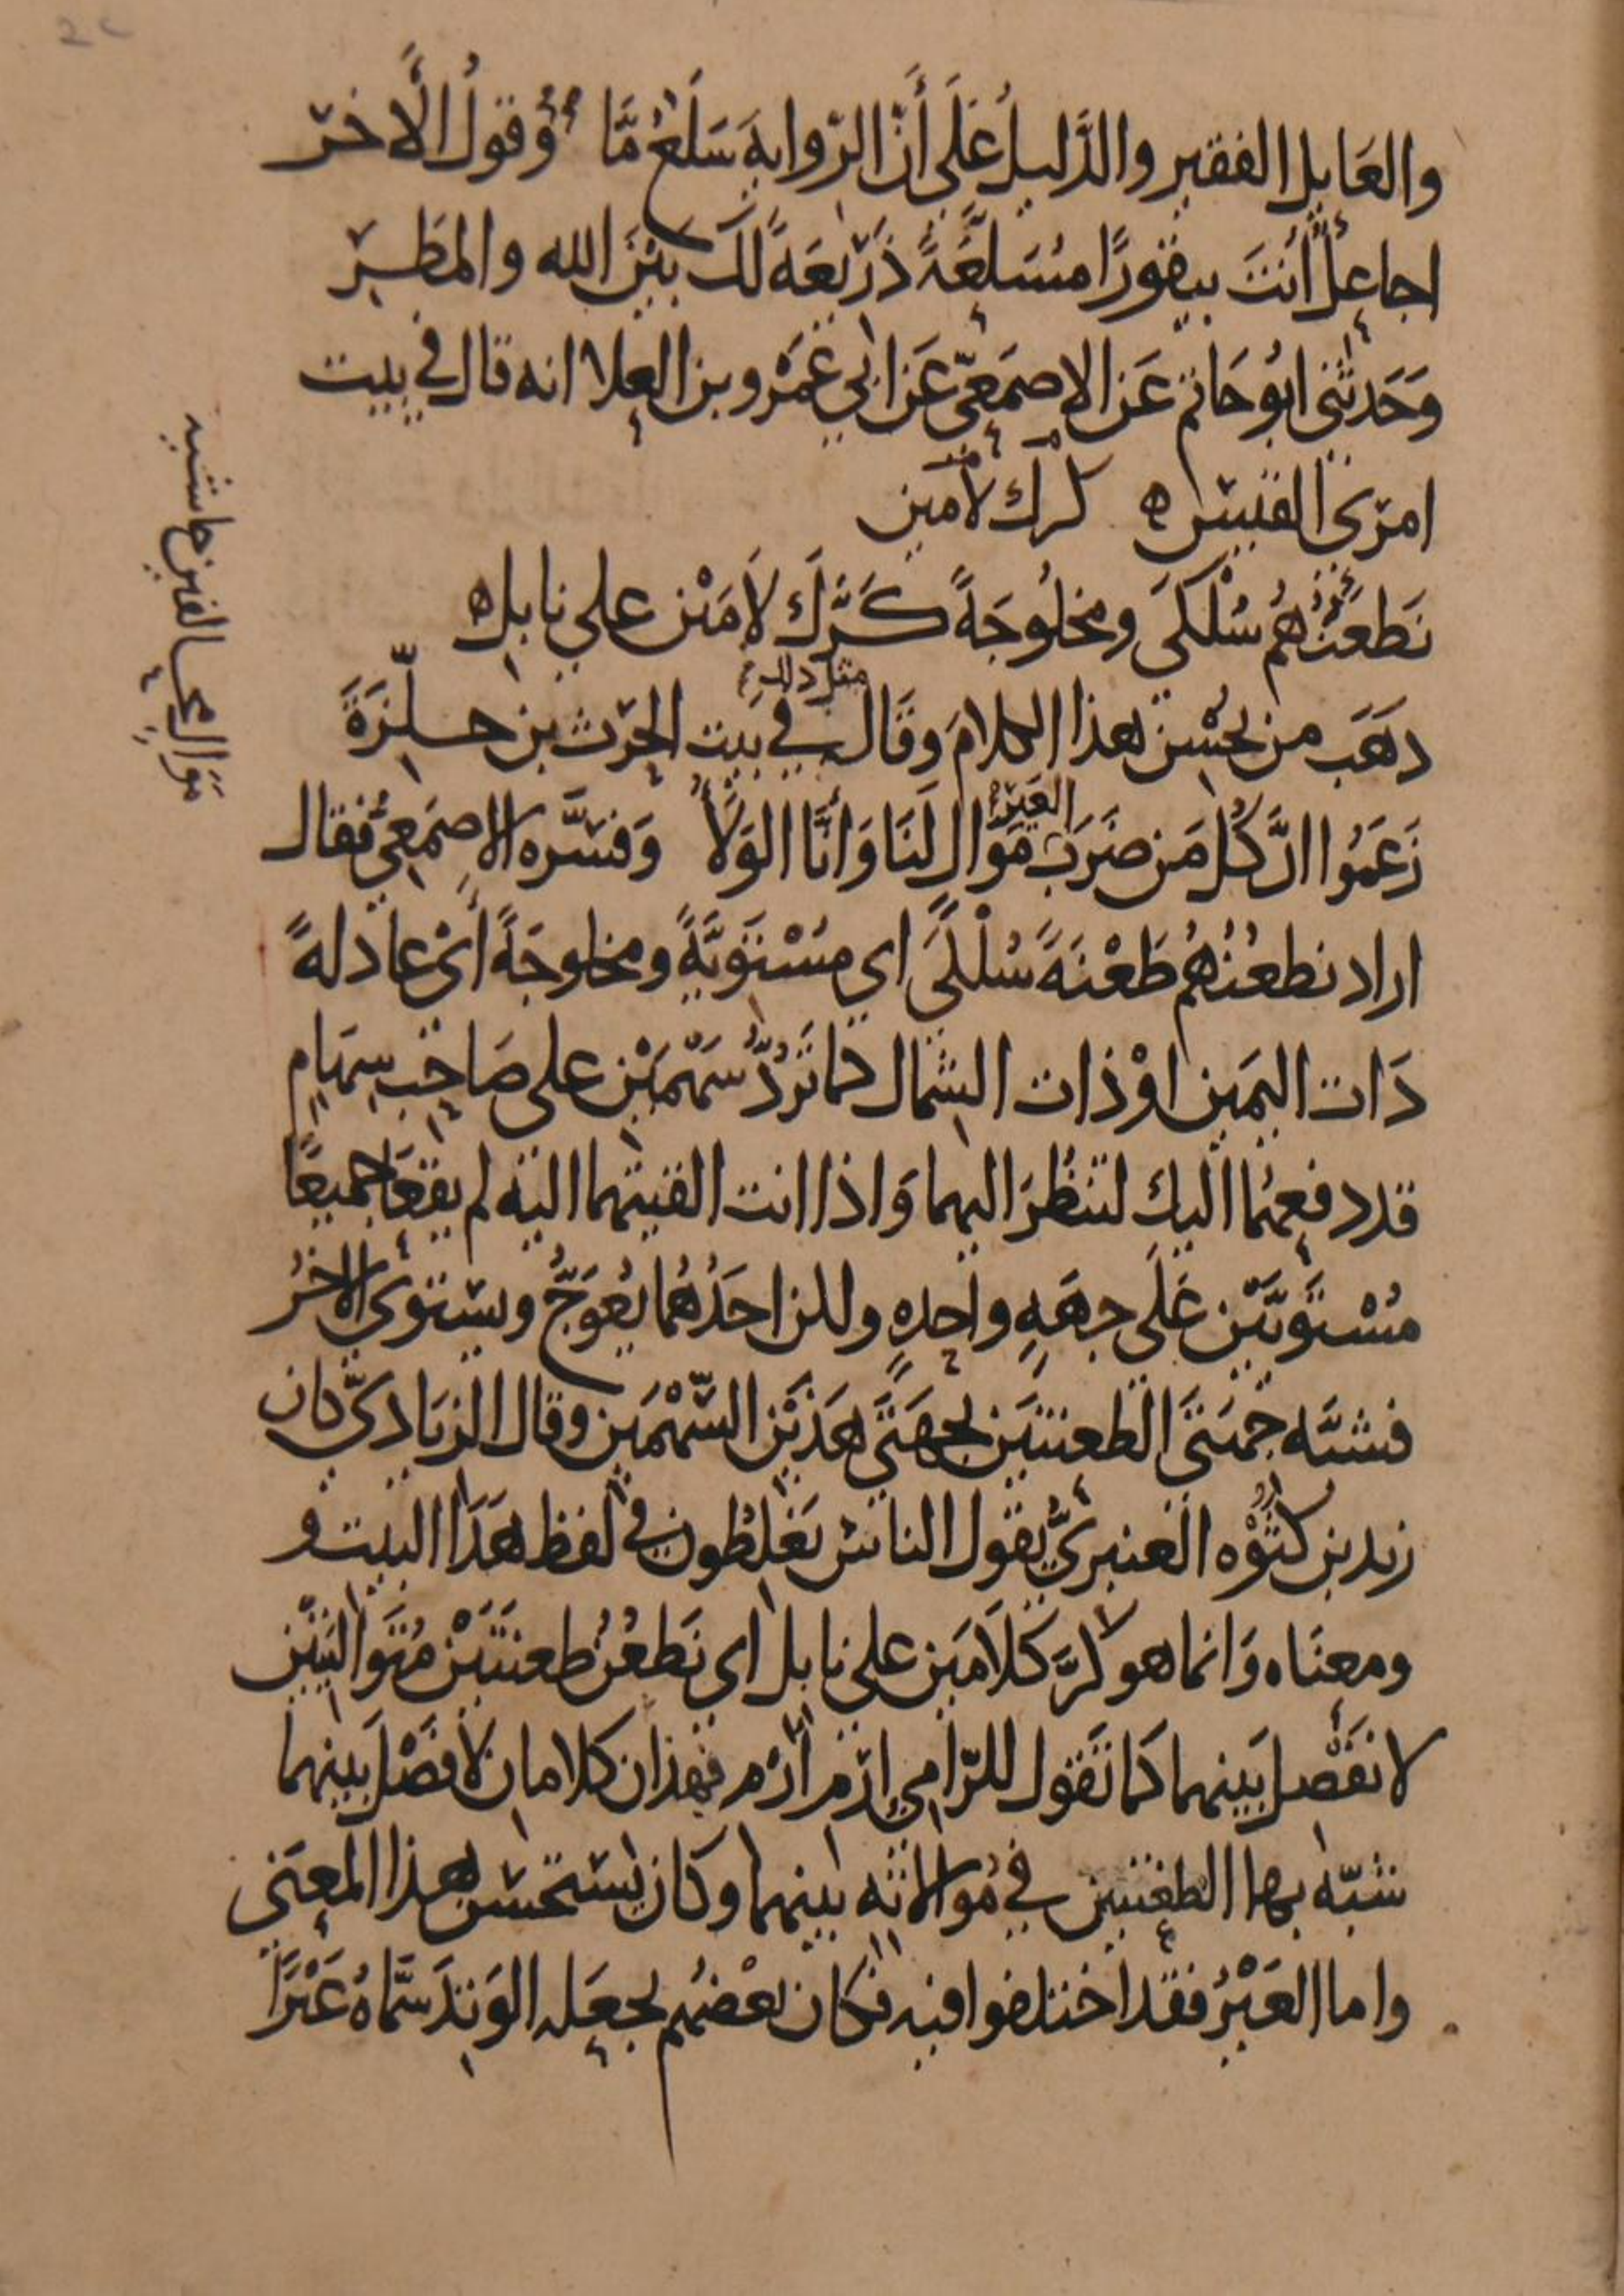 والعَايل الفقير والدَّليلُ عَلَى أَنّ الرّوايةَ سَلَعٌ مَّا وَقولُ الأَخرَ
اجاعِلٌ أَنتَ بيقورًا مُسَلَّعَةً ذَرِيعَةً لكَ بَيْنَ الله والمَطَرِ
وَحَدثني ابُو حَاتم عَن الاصمَعيّ عَن ابي عَمْرو بن العلا انه قال في بيت
امرئ القيس ه كرك لأمين
نَطعَنُهُم سُلْكَى ومخلُوجَةً كَرَّكَ لأَمَيْنِ على نابل ه
دهَبَ من يُحْسِن هذا الكلامَ وَقَال مثل ذلك في بيت الحرث بن حلّزَةَ
زَعَمُوا انَّ كُل مَن ضَرَبَ العَيْرَ مَوَالٍ لَنَا وَأَنَّا الوَلاَُ وَفسَّره الاصمَعِيُّ فقال
اراد نطعُنُهُم طَعْنَةً سُلْكَى اي مسْتَوِيَةً ومخلوجَةً أىْ عادلةً
ذَات اليَمين اوْ ذات الشِمال كما تَرُدُّ سَهْمَيْن على صَاحِب سِهَامٍ
قد دفعهُما اليك لتنظُرَ اليهما وَاذا انت القيتهما اليه لم يَقعَا جميعًا
مُسْتَوِيَيْن عَلَى جِهَةٍ واحِدهٍ ولكن احَدُهُما يَعْوَجُّ ويستوي الاخَرُ
فشبَّه جهَتَي الطعنتَين بجهَتَي هَذَيْن السَّهْمَين وقال الزيَاديّ كان
زيد بن كُثْوَه العنبريُّ يقول الناس يَغلَطُون في لفظ هَذَا البيت و
ومعنَاه وَانما هو كَرَّ كَلاَمَين على نابل اي نَطعُنُ طعنَتَيْن مُتَوَاليَتَيْن
لا نَفْصل بَينهما كما تَقول للرّامي اِرم اِرم فهذان كلامان لا فَصْلَ بينهما
شبّهَ بها الطعنتين في مُوالاته بينهما وكان يستحسن هذا المعنى
واما العَيْرُ فقد اختلفوا فيه فكان بعْضهُم يجعَله الوَتِدَ سَمَّاهُ عَيْرًا